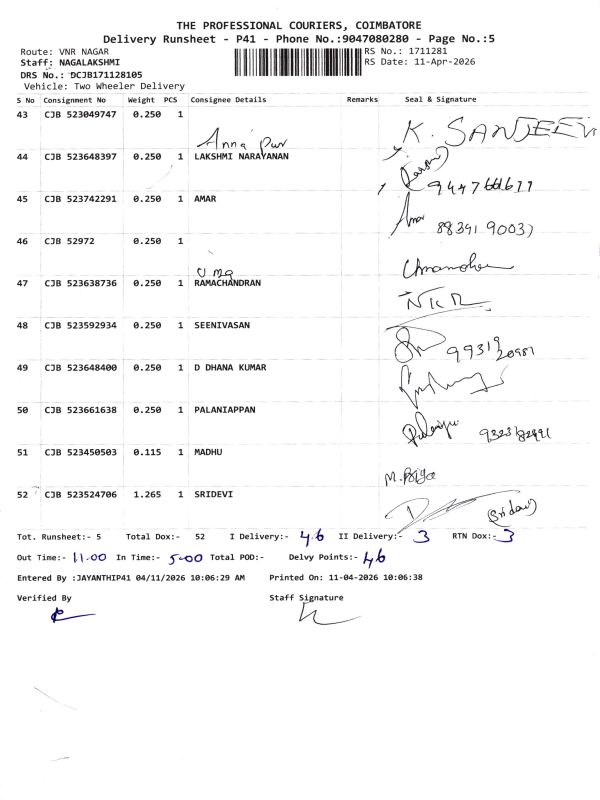 THE PROFESSIONAL COURIERS, COIMBATORE
Delivery Runsheet - P41 - Phone No.:9047080280 - Page No.:5
Route: VNR NAGAR RS No.: 1711281
Staff: NAGALAKSHMI RS Date: 11-Apr-2026
DRS No.: DCJB171128105
Vehicle: Two Wheeler Delivery
S No Consignment No Weight PCS Consignee Details Remarks Seal & Signature
43 CJB 523049747 0.250 1 K. SANJEEV
Anna pur
44 CJB 523648397 0.250 1 LAKSHMI NARAYANAN
45 CJB 523742291 0.250 1 AMAR
46 CJB 52972 0.250 1
Uma
47 CJB 523638736 0.250 1 RAMACHANDRAN
48 CJB 523592934 0.250 1 SEENIVASAN
49 CJB 523648400 0.250 1 D DHANA KUMAR
50 CJB 523661638 0.250 1 PALANIAPPAN
51 CJB 523450503 0.115 1 MADHU
M. Priya
52 CJB 523524706 1.265 1 SRIDEVI
Tot. Runsheet:- 5 Total Dox:- 52 I Delivery:- 46 II Delivery:- 3 RTN Dox:- 3
Out Time:- 11.00 In Time:- 5.00 Total POD:- Delvy Points:- 46
Entered By :JAYANTHIP41 04/11/2026 10:06:29 AM Printed On: 11-04-2026 10:06:38
Verified By Staff Signature